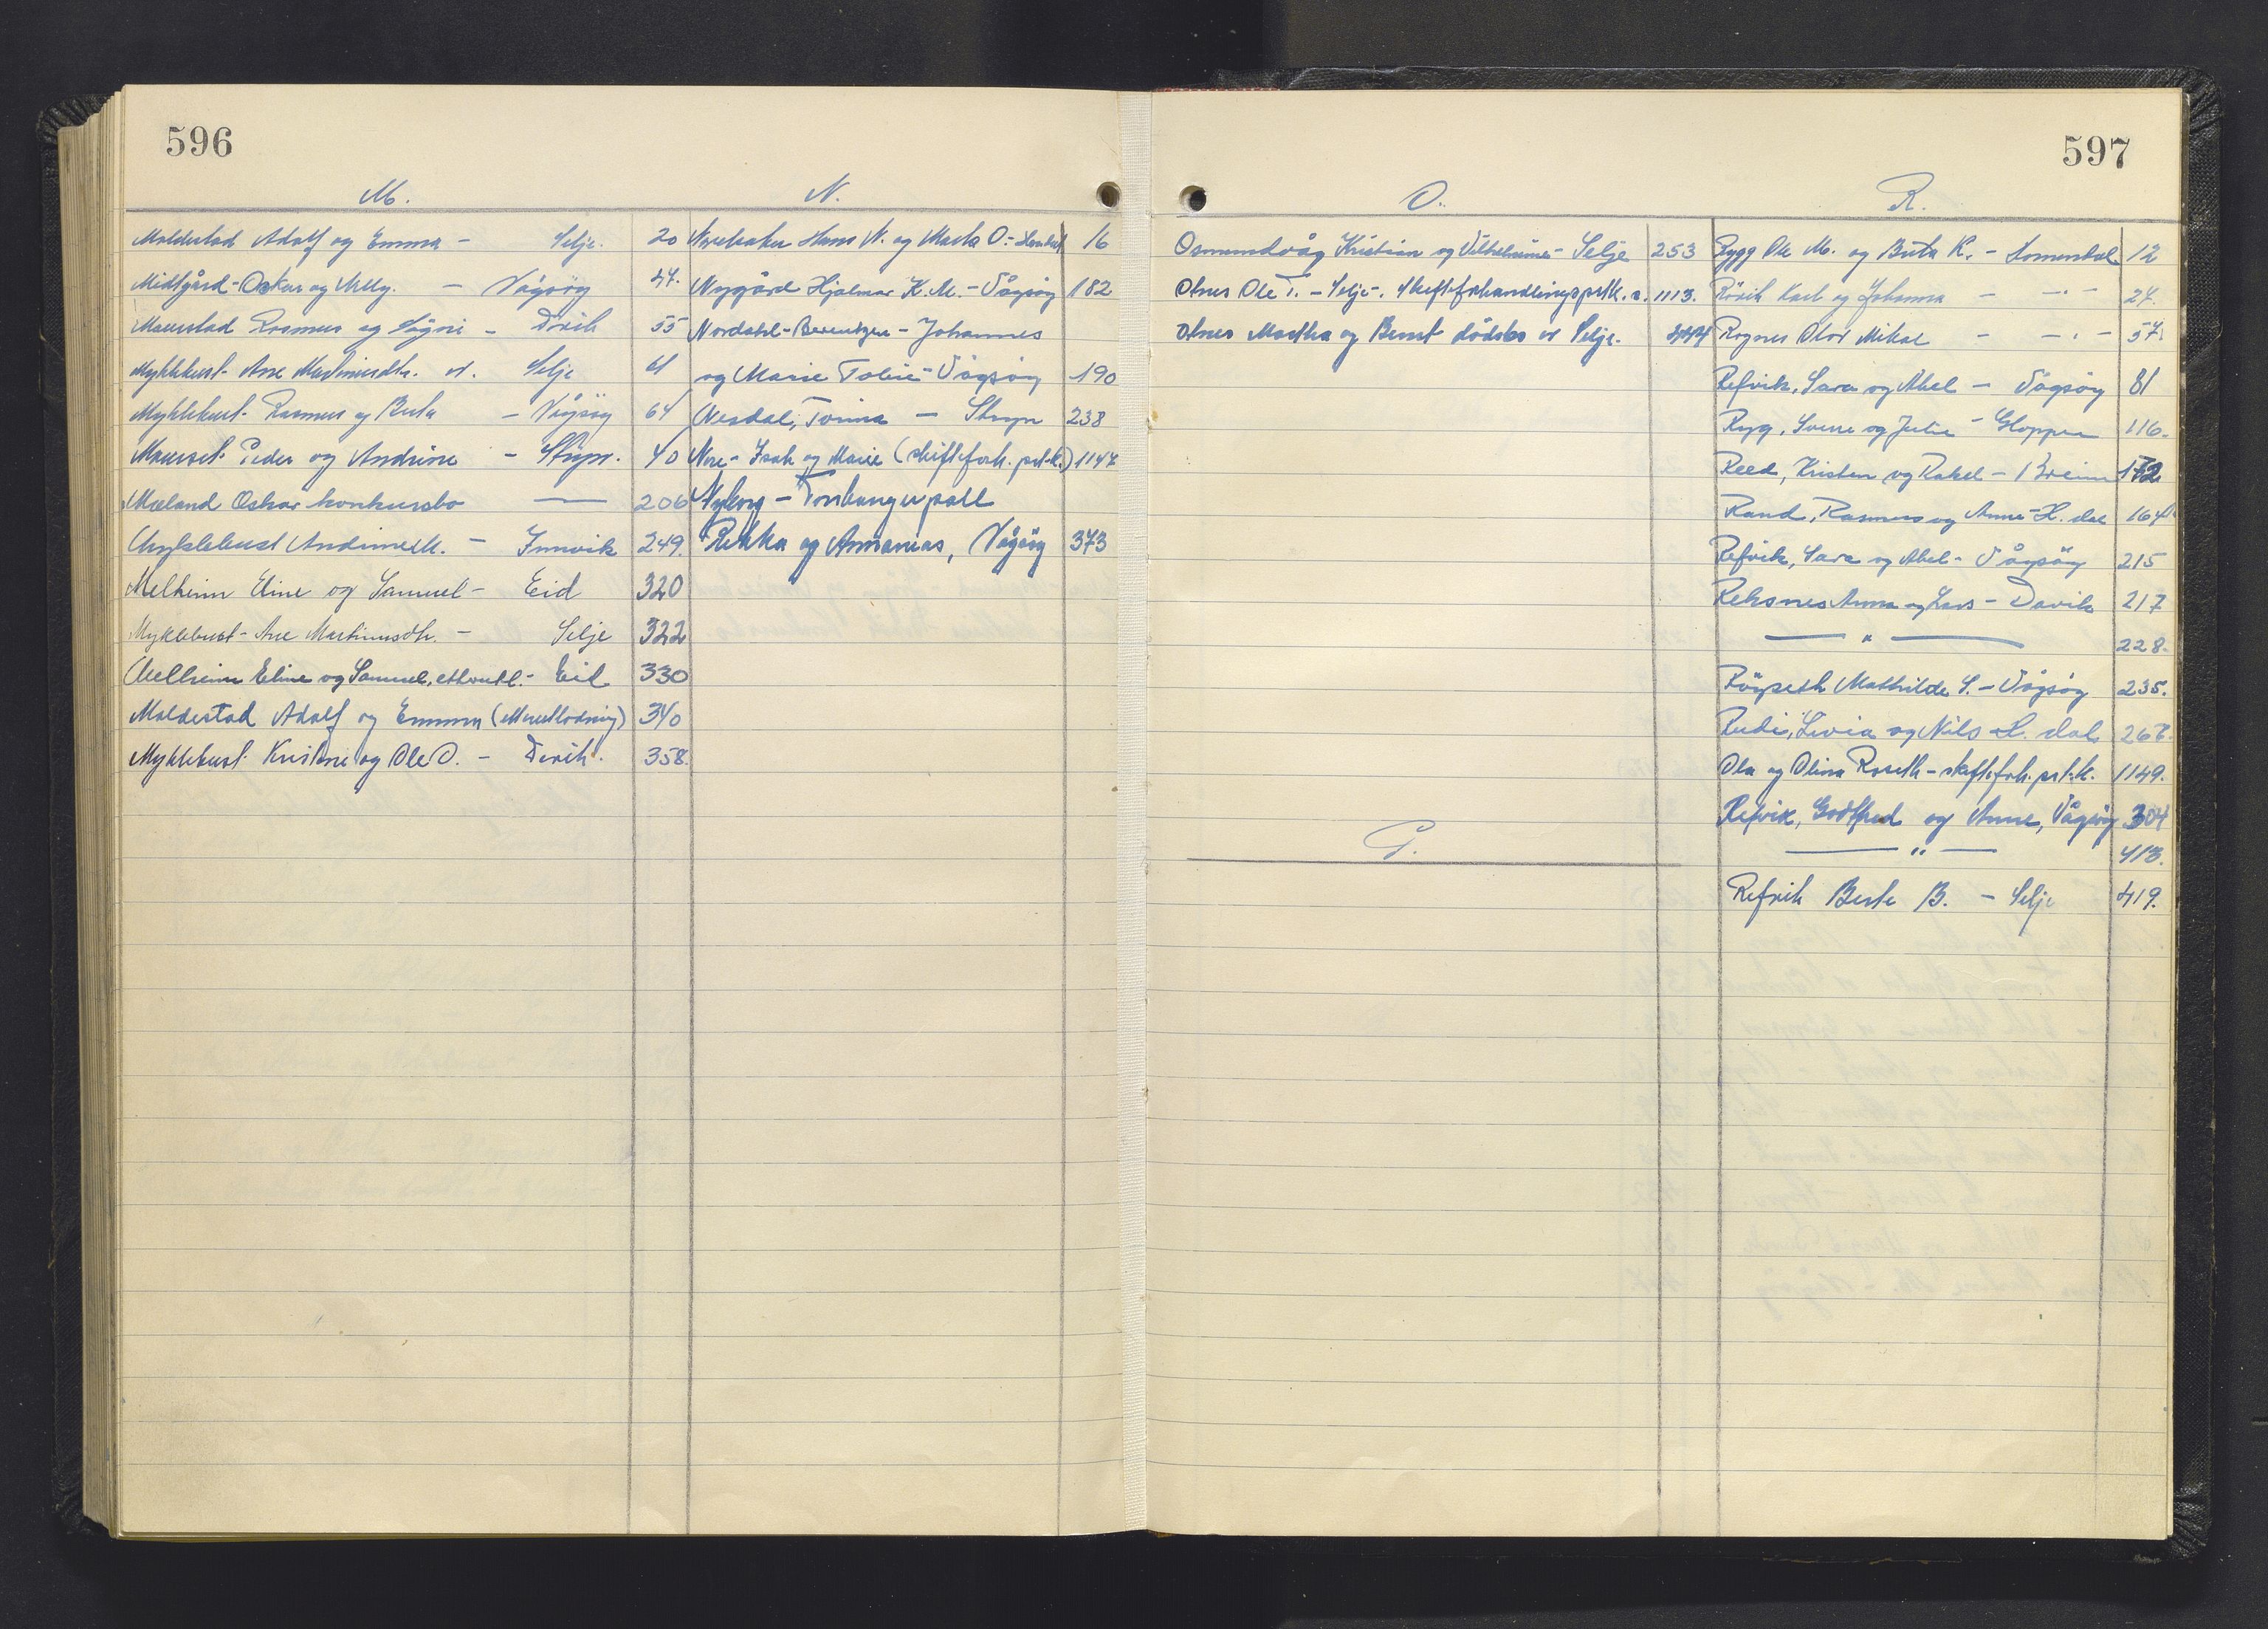 596
M.
Maldestad Adolf og Emma - Selje. 20
Midtgård - Oskar og Milly. - Vågsøy 47.
Maurstad Rasmus og Signi - Davik 55
Myklebust Ane Martinusdtr. Selje 61
Myklebust. Rasmus og Berta - Vågsøy 64
Maurset. Peder og Andrine - Stryn. 40
Mæland Oskar konkursbo — 206
Myklebust Andrine M. - Innvik 249.
Melheim Eline og Samuel - Eid 320
Myklebust - Ane Martinusdtr. - Selje 322
Melheim Eline og Samuel, - Eid 330
Maldestad Adolf og Emma 340
Myklebust Kristine og Ole O. - Davik. 358.
N.
Hans N. og Marta O. - 16
Nygård Hjalmar K. M. - Vågsøy 182
Nordahl - Berentzen - Johannes
og Marie Tobie - Vågsøy 190
Nesdal, Torina - Stryn 238
Nere - Isak og Marie (skifteforh. prt.k.) 1147
Nyborg - Tonhaugerpoll
Rekka og Annanias, Vågsøy 373
597
O.
Osmundvåg Kristian og Vilhelmine - Selje 253
Otnes Ole T. - Selje -. Skifteforhandlingsprtk. 1113.
Otnes Martha og Bernt dødsbo Selje. 444
P.
R.
Rygg Ole M. og Berta K. - 12
Rörvik Karl og Johanna - -.- 27.
Rognes Olav Mikal - -.- 57.
Refvik, Sara og Abel - Vågsøy 81
Ryg, Sverre og Julie - Gloppen 116.
Reed, Kristen og Rakel - Breim 172
Rand, Rasmus og Anne - H. dal 164
Refvik, Sara og Abel - Vågsöy 215
Reksnes Anna og Lars - Davik 217
— " — 228.
Röyseth Mathilde S. - Vågsøy 235.
Rudi, Livia og Nils - H. dal 267.
Ola og Olina Roseth - skifteforh. prt.k. 1149.
Refvik, Godtfred og Anne, Vågsøy 304
— " — 413.
Refvik Berte B. - Selje 419.